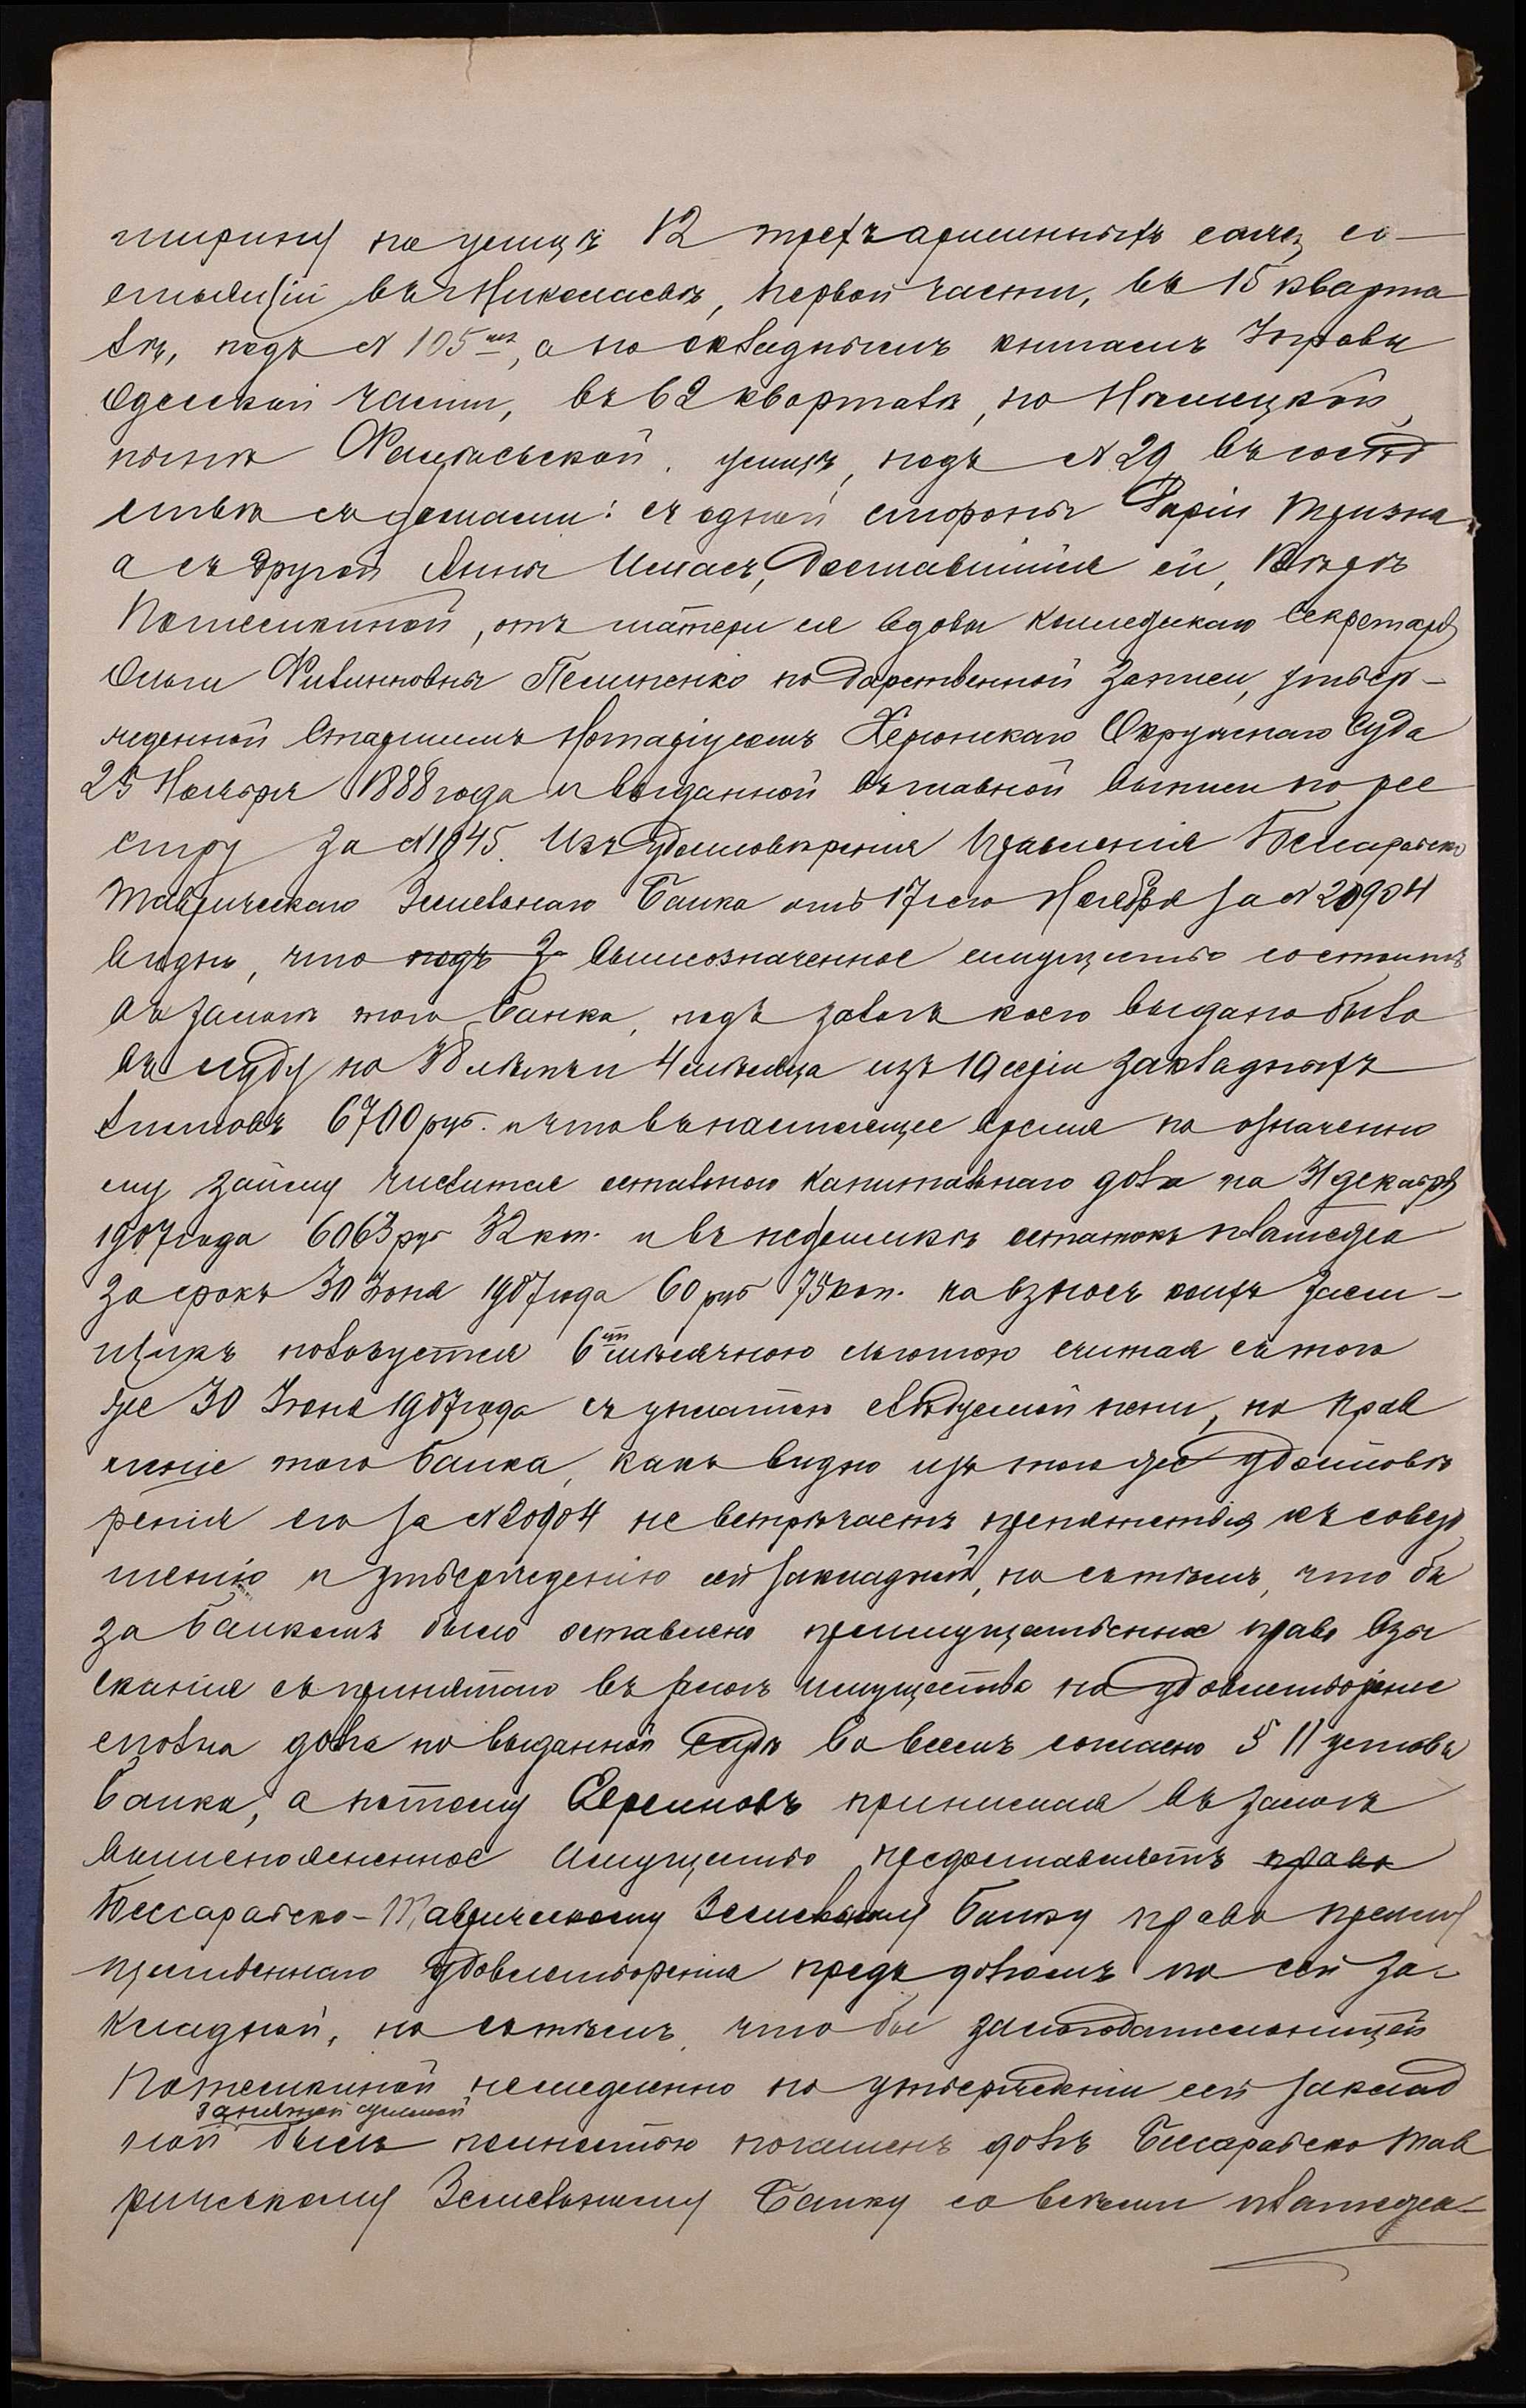 ширину на улицѣ 12 трехъаршинныхъ саж., со-
стоящій въ Николаевѣ, первой части, въ 15 кварта
лѣ, подъ № 105мъ, а по окладнымъ книгамъ Управы
Одесской части, въ 62 кварталѣ, по Нѣмецкой,
нынѣ улицѣ, подъ № 29 въ сосѣд
ствѣ съ домами: съ одной стороны Дарьи
а съ другой Анны доставшійся ей,
Потемкиной, отъ матери ея вдовы Коллежскаго Секретаря
Ольги Филипповны по дарственной записи, утвер-
жденной Старшимъ Нотаріусомъ Херсонскаго Окружнаго Суда
25 Ноября 1888 года и выданной въ главной выписи по рее
стру за № 1945. Изъ удостовѣренія Правленія Бессарабско
Таврическаго Земельнаго Банка отъ 17го Ноября за № 20904
видно, что подъ за вышеозначенное имущество состоитъ
въ залогѣ того Банка, подъ залогъ коего выдано было
въ ссуду на 38 лѣтъ и 4 мѣсяца изъ 19 серіи закладныхъ
листовъ 6700 руб. и что въ настоящее время по означенно
му займу числится остальнаго капитальнаго долга на 31 декабря
1907 года 6063 руб 32 коп. и въ недоимкѣ остатокъ платежа
за срокъ 30 Іюня 1907 года 60 руб 75 коп. на взносъ коихъ заем-
щикъ пользуется 6ти мѣсячною льготою считая съ того
же 30 Іюня 1907 года съ уплатою слѣдуемой пени, но Прав
леніе того Банка, какъ видно изъ того же удостовѣ
ренія его за № 20904 не встрѣчаетъ препятствія къ совер
шенію и утвержденію сей закладной, но съ тѣмъ, что бы
за Банкомъ было оставлено преимущественное право взы
сканія съ принятаго въ залогъ имущества на удовлетвореніе
сполна долга по выданной ссудѣ во всемъ согласно § 11 устава
Банка, а потому принимая въ залогъ
вышепоясненное имущество предоставляетъ право
Бессарабско-Таврическому Земельному Банку право преиму
щественнаго удовлетворенія предъ долгомъ по сей за-
кладной, но съ тѣмъ, что бы залогодательницей
Потемкиной немедленно по утвержденіи сей заклад
занятой суммой
ной былъ полностью погашенъ долгъ Бессарабско Тав
рическому Земельному Банку со всѣми платежа-